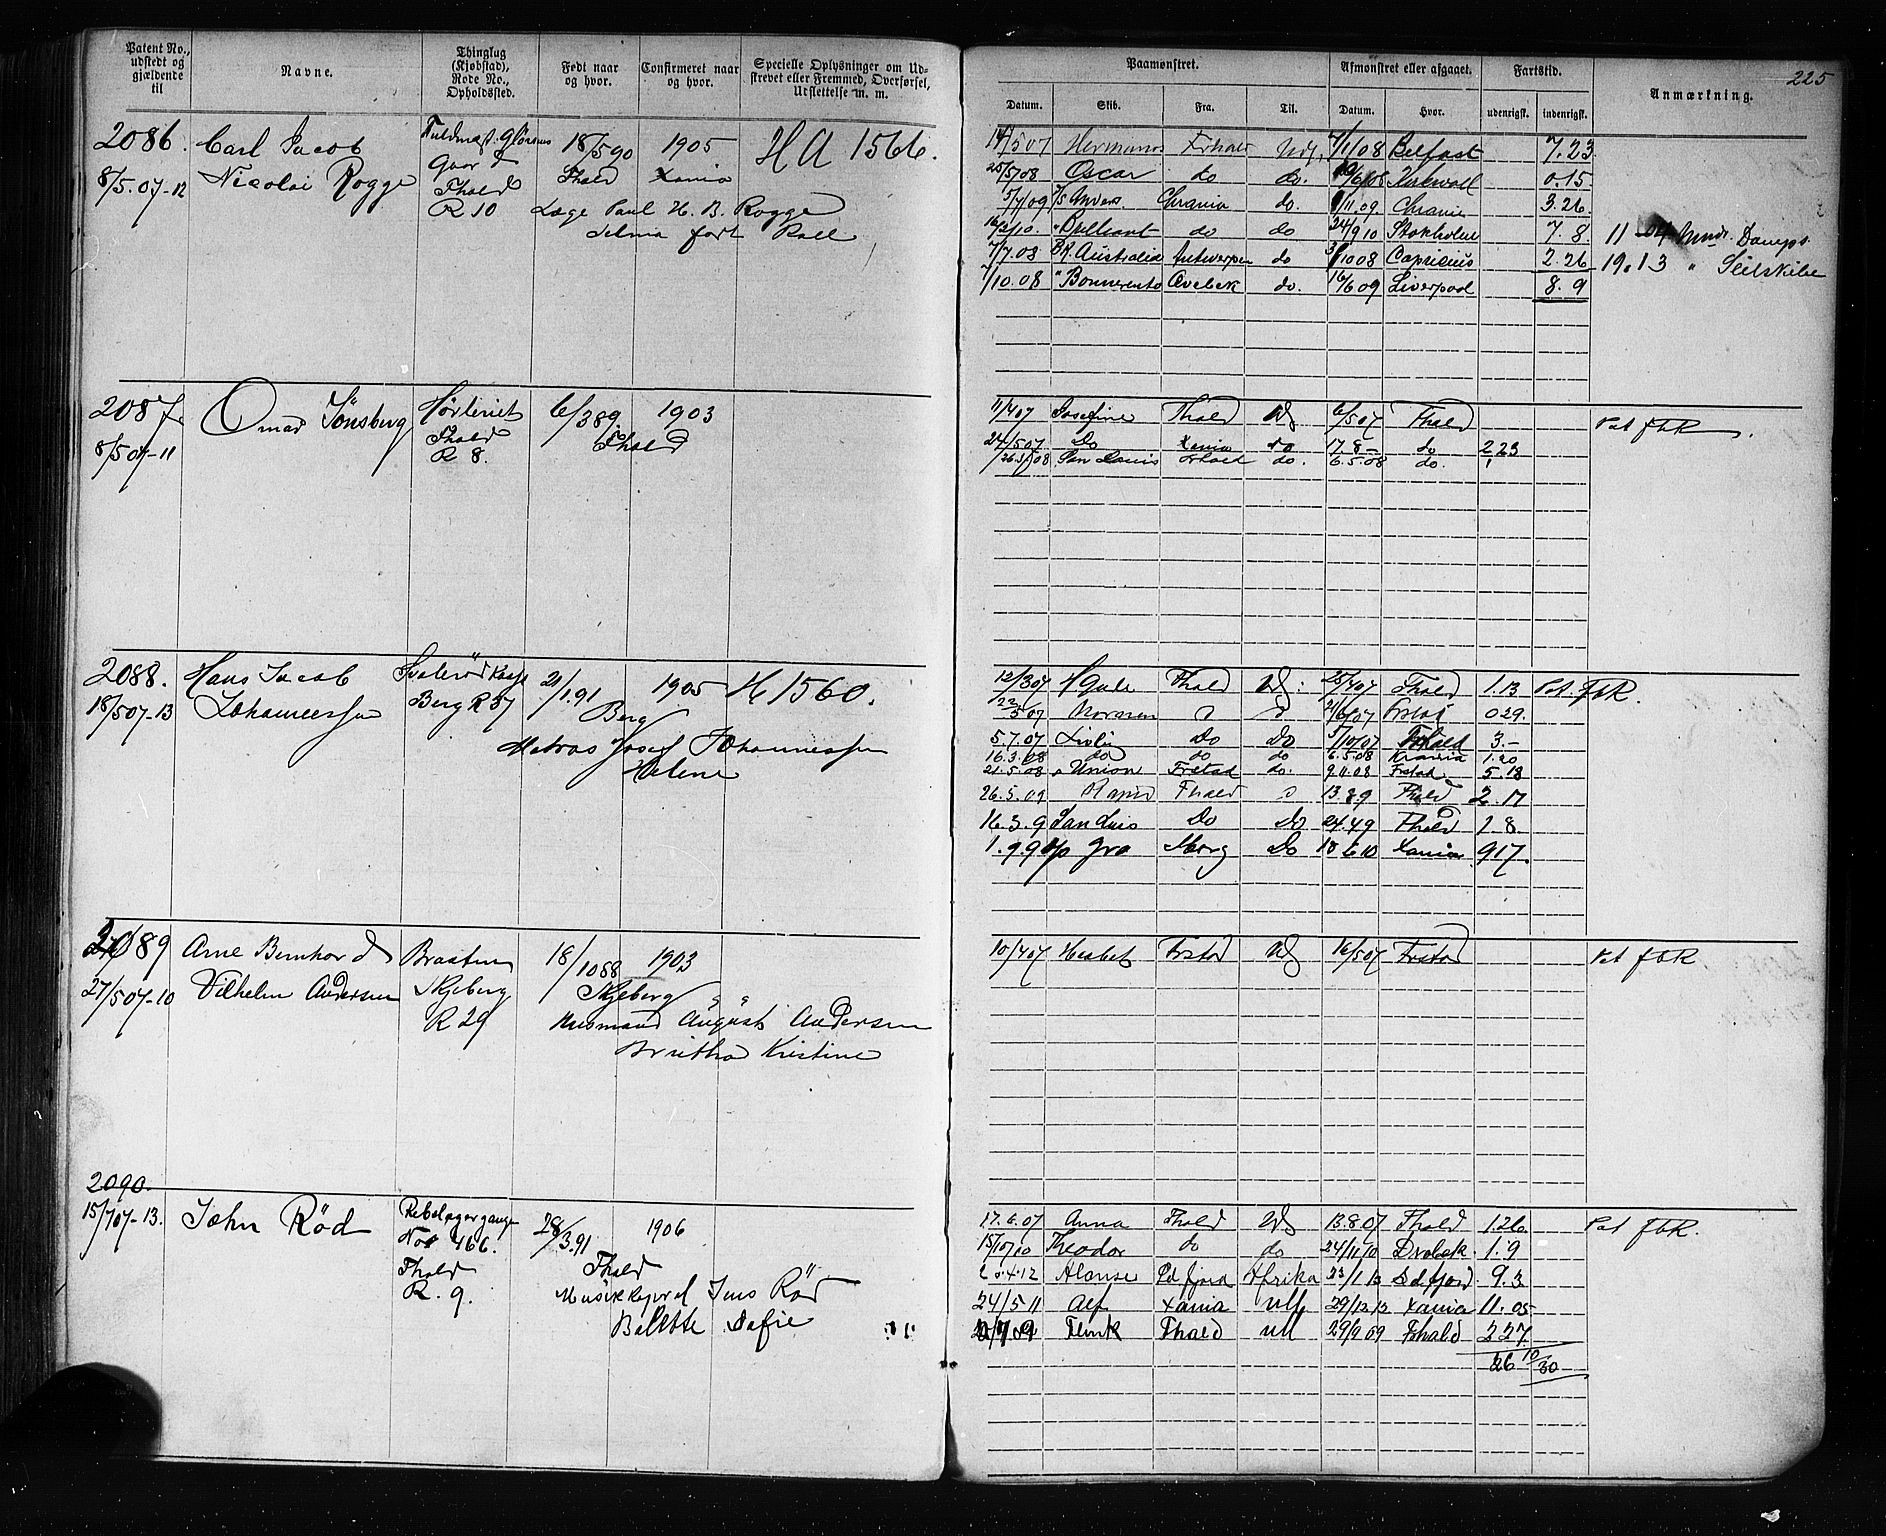 225
Patent No., udstedt og gjældende til
Navne.
Thinglag (Kjøbstad), Rode No., Opholdssted.
Født naar og hvor.
Confirmeret naar og hvor.
Specielle Oplysninger om Udstrevet eller Fremmed, Overførsel, Udslettelse m. m.
Paamønstret.
Afmønstret eller afgaaet.
Fartstid.
Anmærkning.
Datum. Skib. Fra. Til. Datum. Hvor. udenrigsk. indenrigsk.
2086. Carl Jacob 18/5 90 1905 HA 1566.
8/5.07-12 Nicolai Rogge Gaar d Fhald Xania
Fhald
R 10 Læge Paul H. B. Rogge
Selma født Roll
14/5 07 Hermanos Frhald Udl. 7/1 08 Belfast 7.23
25/5 08 Oscar do do. Kirkwall 0.15
5/4 09 Chrania do. 11.09. Chrania 3.26
Brilliant do do 24/9 10 Stokholm 7. 8. 11 Dampsk.
7/7.08 Australia Antwerpen do 08 Capricius 2.26 19.13 " Seilskibe
7/10.08 " Bonnevento do. 16/6 09 Liverpool 8. 9
2087 Omar Tönsberg 6/3 89. 1903
8/5 07-11 Fhald Fhald
R 8.
11/4 07 Josefine Fhald Udl 6/5 07 Fhald Pat fbk.
24/5 07. Do Xania do 17.8 - do 2 23
San Louis Frhald do. 6.5.08 do.
2088. Hans Jacob 21/1.91 1905 H 1560.
18/5 07-13 Johannessen Berg R 37 Berg
Matros Josef Johannessen
Helene
12/3 07 Fhald Udl. 25/4 07 Fhald 1.13 Pat. fbk.
22/5 07 Frstad 0 29.
5.7.07 Do Do 5/10 07 Frhald 3.-
16.3.08 do do do 6.5.08 Xrania 1.20
21.5.08 " Union Frstad do. 9.11.08 Frstad 5.18
26.5.09 Fhald 13.8 9 Fhald 2.17
16.3.9 San Luis Do Do 24.4 9 Fhald 1 8.
1.9 9 Gro Do 18 6 10 Xania 9 17.
2089 Arne Bernhard Braaten 18/10 88 1903
27/5 07-10 Vilhelm Andersen Skjeberg Skjeberg
R 29 Husmand August Andersen
Kristine
10/4 07 Frstad Udl 16/5 07 Frstad Pat fbk
2090.
15/7 07-13. John Röd Rebslagergangen 28/3.91 1906
No 466. Fhald
Fhald Jens Röd
R. 9. Sofie
17.6.07 Anna Fhald Udl 13.8 07 Fhald 1.26 Pat fbk.
15/10 10 Theodor do do 24/11 10 Drøbak 1.9
4.12 Afrika 23/1 13 9.3
24/5 11 Alf Xania Utl 29/12 12 Xania 11.05
Flink Fhald Utl 29/9 09 Fhald 2 27
26 10/30